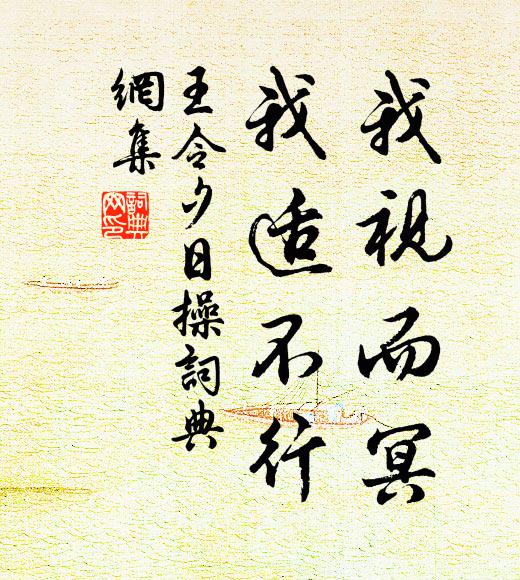 我视而冥
我适不行
王令夕日操詞典
網集
詞典
网印